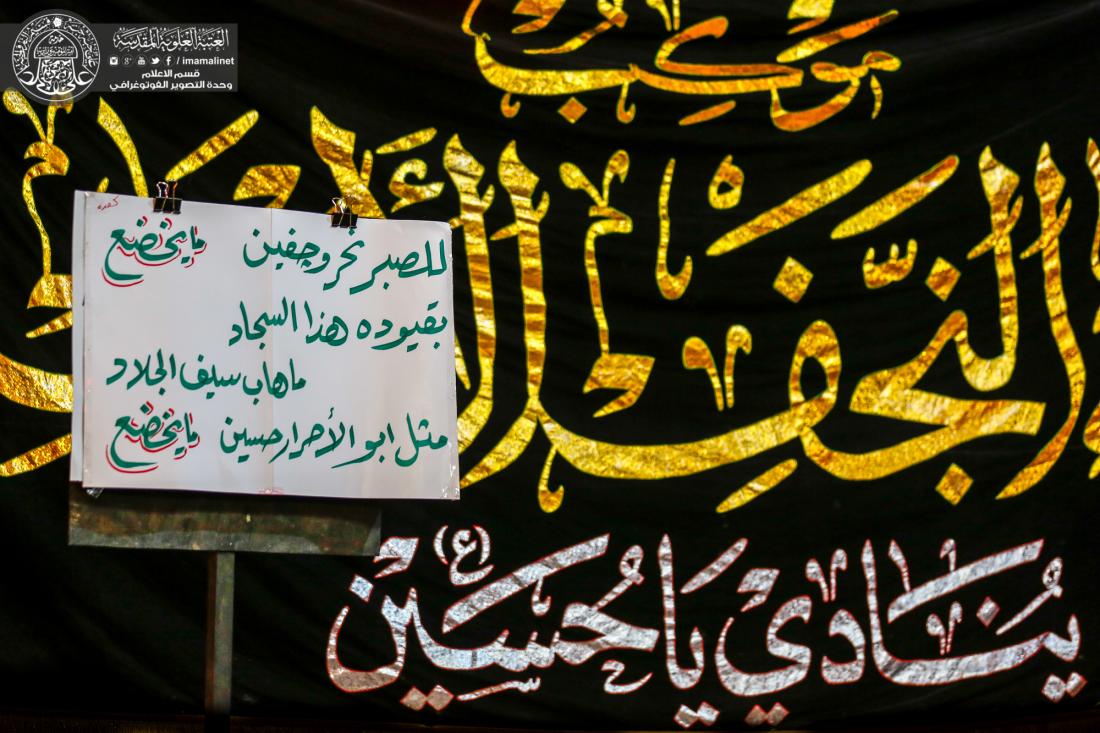 العتبة العلوية المقدسة
/ imamalinet
قسم الاعلام
وحدة التصوير الفوتوغرافي
موكب
النجف الأ
ينادي يا حسين (ع)
للصبر نحر وجفين ما يخضع
بقيوده هذا السجاد
ماهاب سيف الجلاد
مثل ابو الأحرار حسين ما يخضع